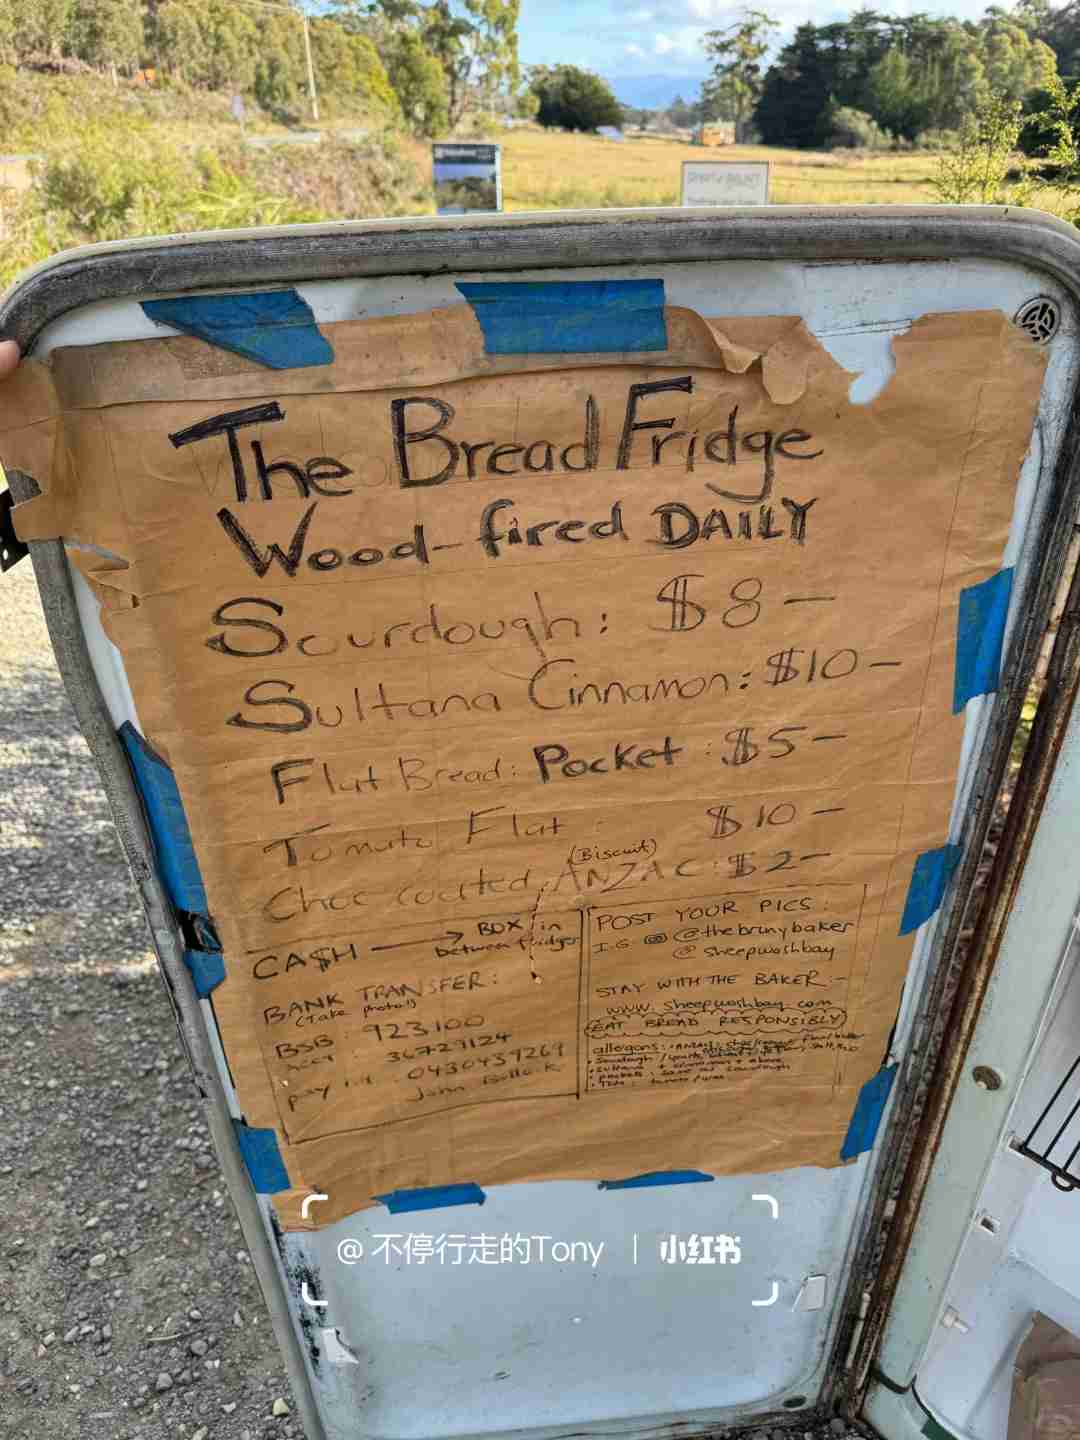 The Bread Fridge
Wood-fired DAILY
Sourdough: $8-
Sultana Cinnamon: $10-
Flat Bread: Pocket: $5-
Tomato Flat: $10-
(Biscuit)
Choc coated ANZAC: $2-
CA$H → BOX in
between fridges
BANK TRANSFER:
(Take photo!)
BSB: 923100
acct: 36729124
pay i.d: 0430439269
John Bullock
POST YOUR PICS:
I.G. @thebrunybaker
@sheepwashbay
STAY WITH THE BAKER:-
www.sheepwashbay.com
EAT BREAD RESPONSIBLY
@不停行走的Tony | 小红书